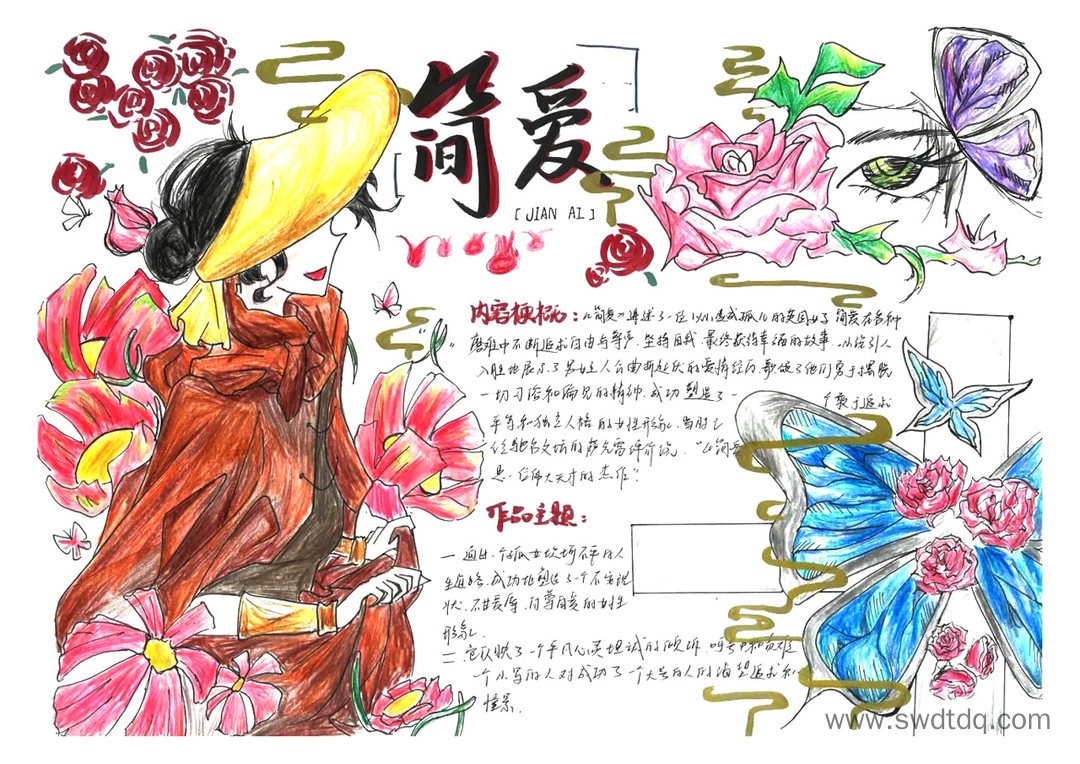 简爱
[JIAN AI]
内容梗概：《简爱》讲述了一位从小变成孤儿的英国女子简爱在各种
磨难中不断追求自由与尊严，坚持自我，最终获得幸福的故事。小说引人
入胜地展示了男女主人公曲折起伏的爱情经历，歌颂了他们勇于摆脱
一切习俗和偏见的精神，成功塑造了一
个敢于追求
平等和独立人格的女性形象。当时已
经驰名文坛的萨克雷评价说："《简爱》
是一位伟大天才的杰作"
作品主题：
一 通过一个孤女坎坷不平的人
生道路，成功地塑造了一个不安现
状、不甘受辱、自尊自爱的女性
形象。
二、它反映了一个平凡心灵坦诚的倾诉、呼号和责难
一个小写的人对成功了一个大写的人的渴望追求和
憧憬。
www.swdtdq.com